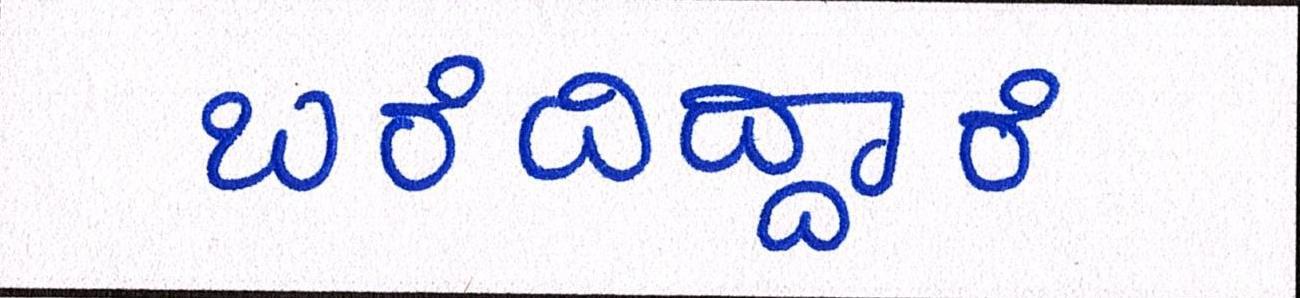 ಬರೆದಿದ್ದಾರೆ